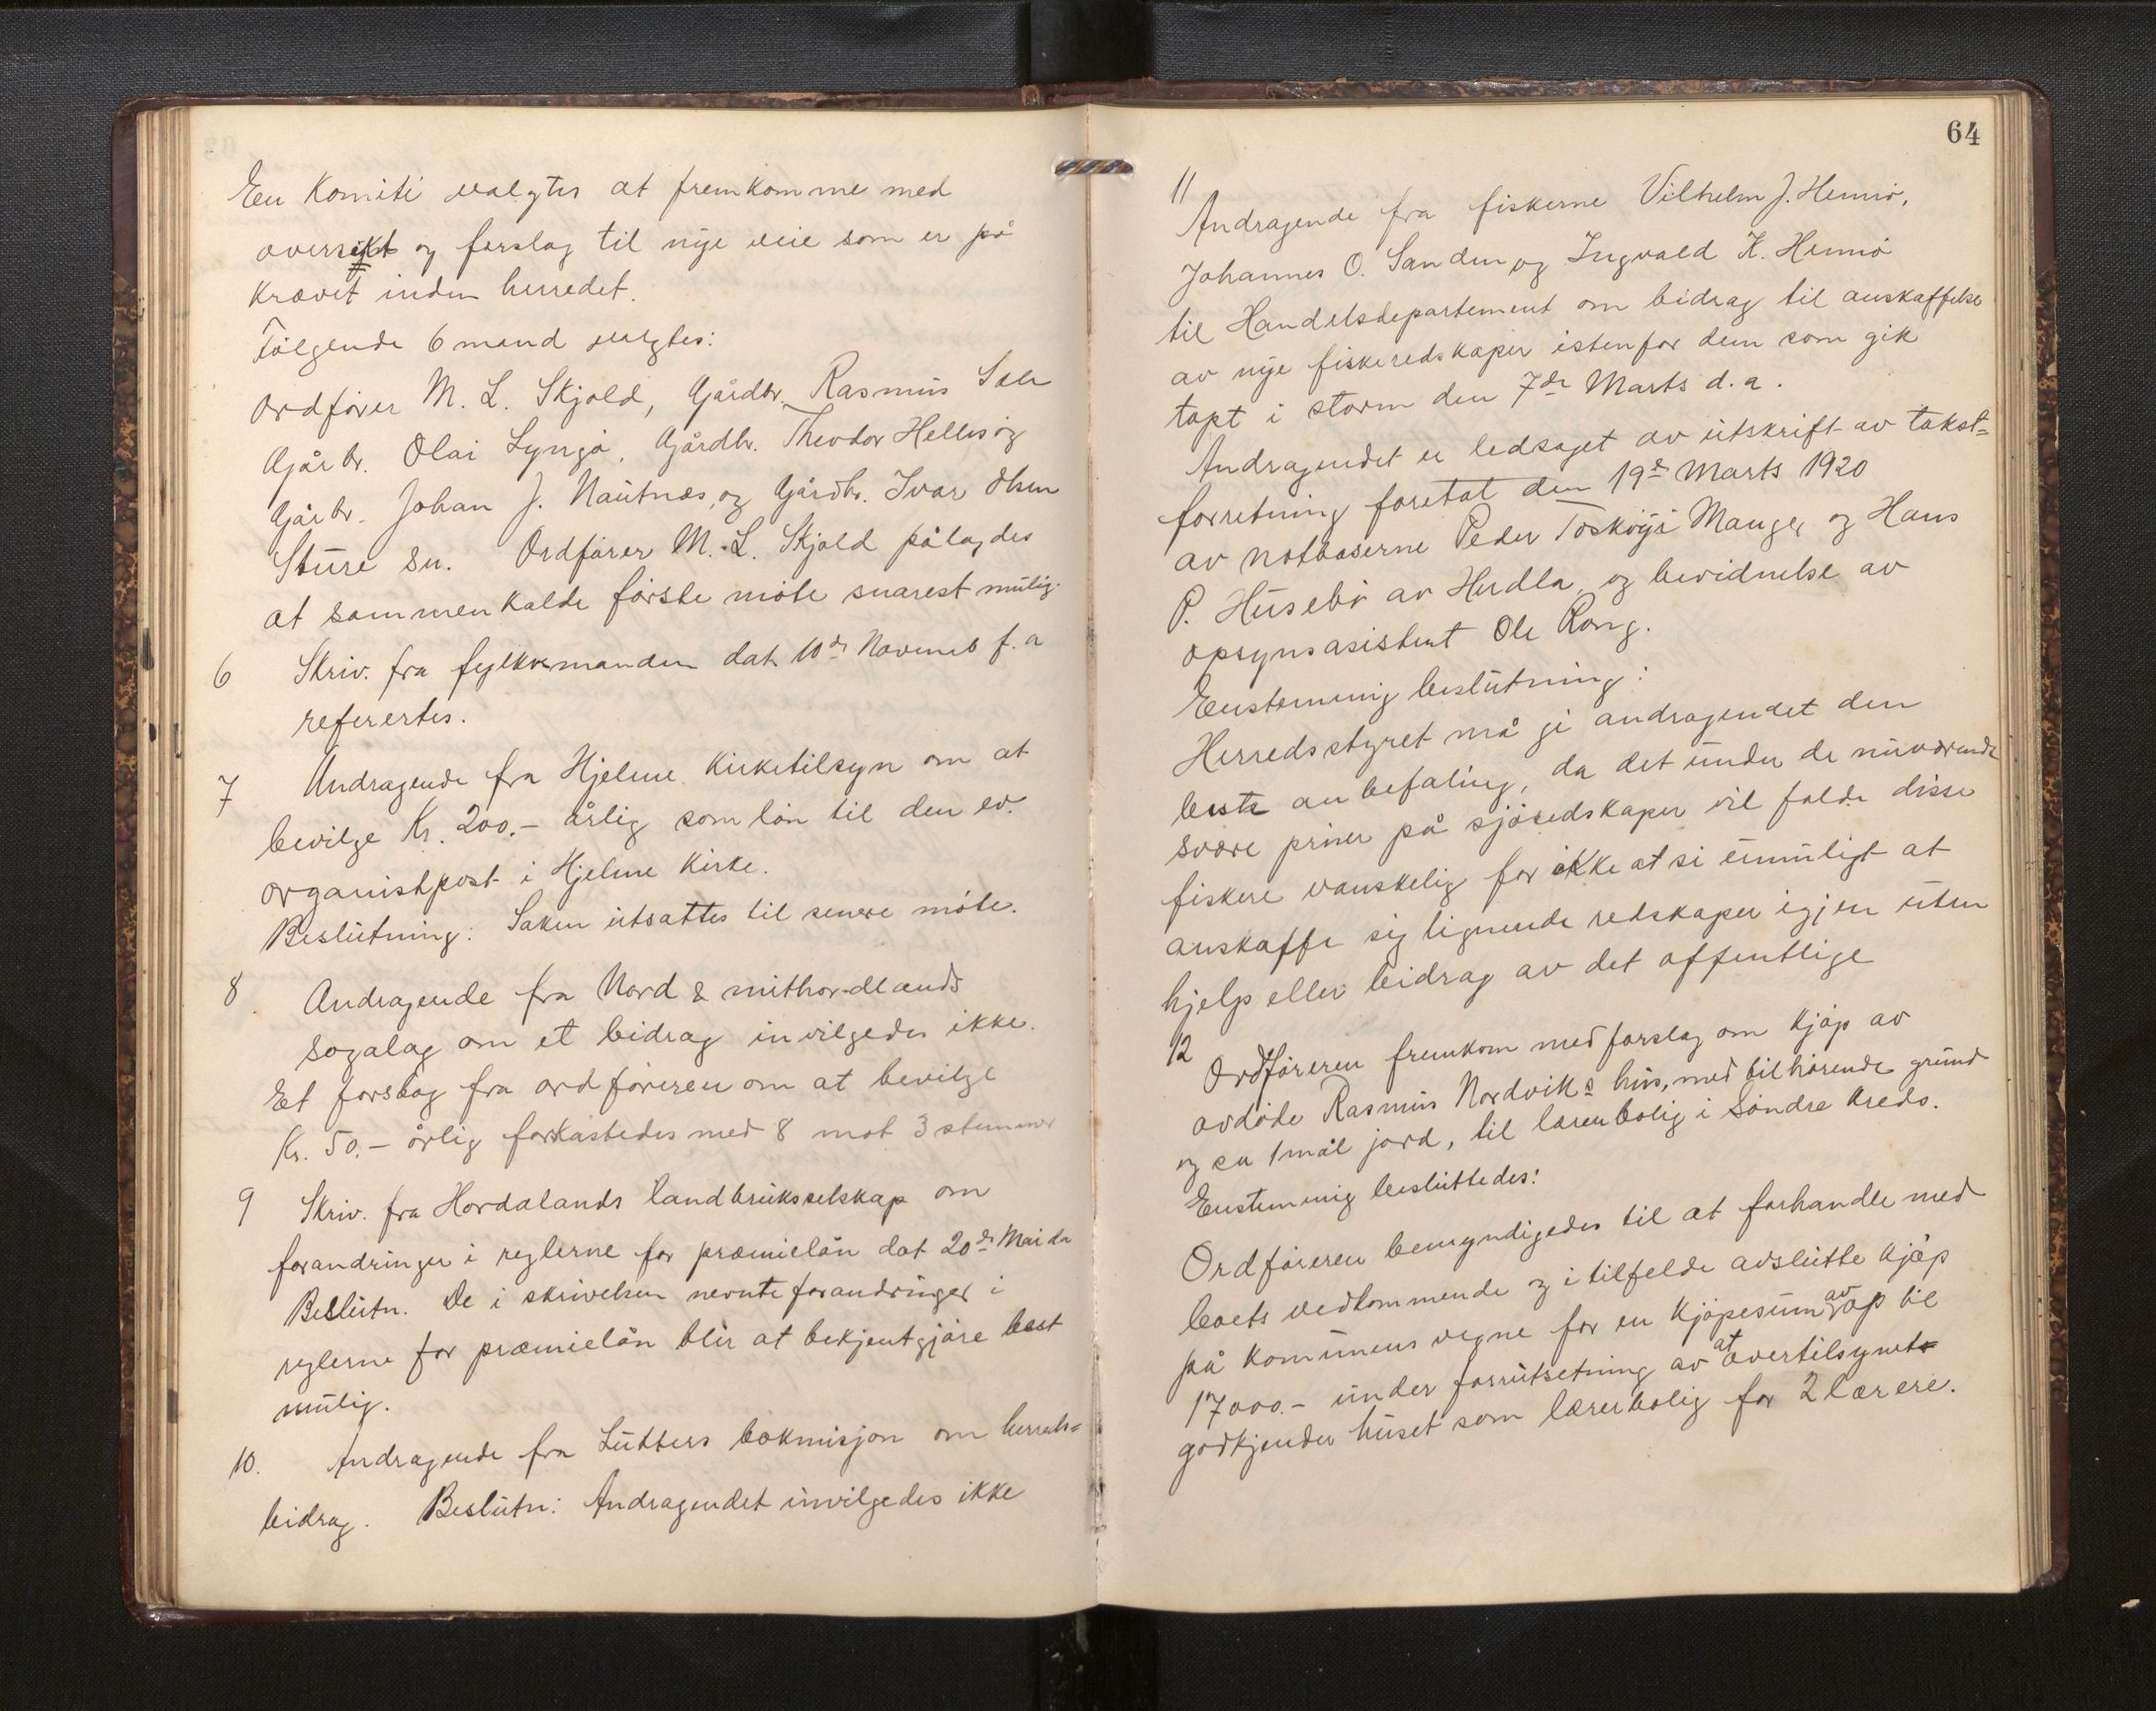 En Komité valgtes at fremkomme med
oversikt og forslag til nye veie som er på
krævet inden herredet.
Følgende 6 mand valgtes:
Ordfører M. L. Skjold, Gårdbr. Rasmus Sæle
Gårbr. Olai Lyngø, Gårdbr. Theodor Hellesög
Gårbr. Johan J. Nautnes, og Gårdbr. Ivar Olsen
Sture sn. Ordfører M. L. Skjold pålagdes
at sammenkalde förste möte snarest mulig.
6 Skriv. fra fylkesmanden dat. 10de Novemb f. a
referertes.
7 Andragende fra Hjelme Kirketilsyn om at
bevilge Kr. 200.- årlig som lön til den ev.
organistpost i Hjelme Kirke.
Beslutning: Saken utsattes til senere möte.
8 Andragende fra Nord & mithordlands
sogalag om et bidrag invilgedes ikke.
Et forslag fra ordföreren om at bevilge
Kr. 50.- årlig forkastedes med 8 mot 3 stemmer
9 Skriv. fra Hordalands landbruksselskap om
forandringer i reglerne for præmielån dat 20de Mai da
Beslutn. De i skrivelsen nevnte forandringer i
reglerne for præmielån blir at bekjentgjöre best
mulig.
10. Andragende fra Lutters bokmisjon om herreds=
bidrag. Beslutn: Andragendet invilgedes ikke
64
11
Andragende fra fiskerne Vilhelm J. Hernö,
Johannes O. Sanden og Ingvald K. Hernö
til Handelsdepartement om bidrag til anskaffelse
av nye fiskeredskaper istenfor dem som gik
tapt i storm den 7de Marts d. a.
Andragendet er ledsaget av utskrift av takst=
forretning foretat den 19de Marts 1920
av notbaserne Peder Tosköyi Manger og Hans
P. Husebö av Herdla, og bevidnelse av
opsynsasistent Ole Rong.
Enstemmig beslutning:
Herredsstyret må gi andragendet den
beste anbefaling, da det under de nuværende
svære priser på sjöredskaper vil falde disse
fiskere vanskelig for ikke at si umuligt at
anskaffe sig lignende redskaper igjen uten
hjelp eller bidrag av det offentlige
12 Ordföreren fremkom med forslag om kjöp av
avdöde Rasmus Nordviks hus, med tilhörende grund
og ca 1 mål jord, til lærerbolig i Söndre Kreds.
Enstemmig besluttedes:
Ordföreren bemyndigedes til at forhandle med
boets vedkommende og i tilfelde avslutte kjöp
på komunens vegne for en kjöpesum av op til
17000.- under forrutsetning av at overtilsynet
godkjender huset som lærerbolig for 2 lærere.